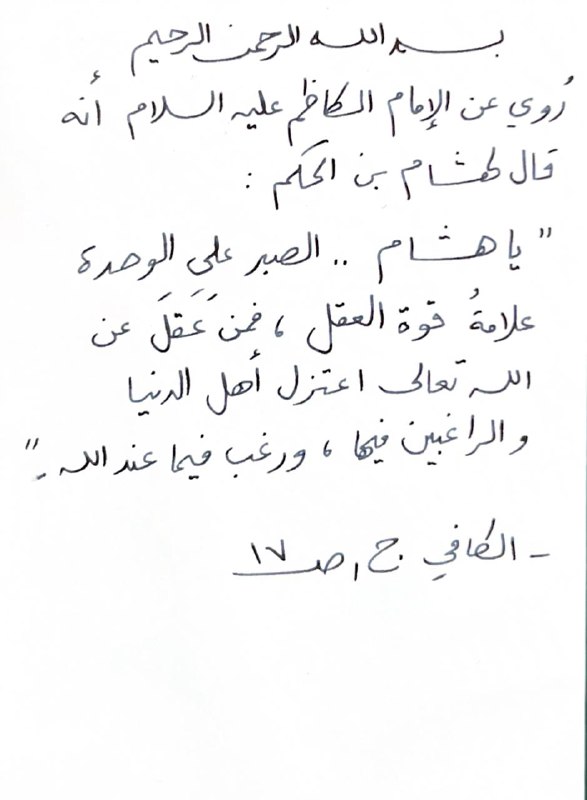 بسم الله الرحمن الرحيم
رُوي عن الإمام الكاظم عليه السلام أنه
قال لهشام بن الحَكم :
"يا هشام .. الصبر على الوحدة
علامةُ قوة العقل ، فمن عَقَلَ عن
الله تعالى اعتزل أهل الدنيا
والراغبين فيها ، ورغب فيما عند الله ."
- الكافي ج١ ص١٧